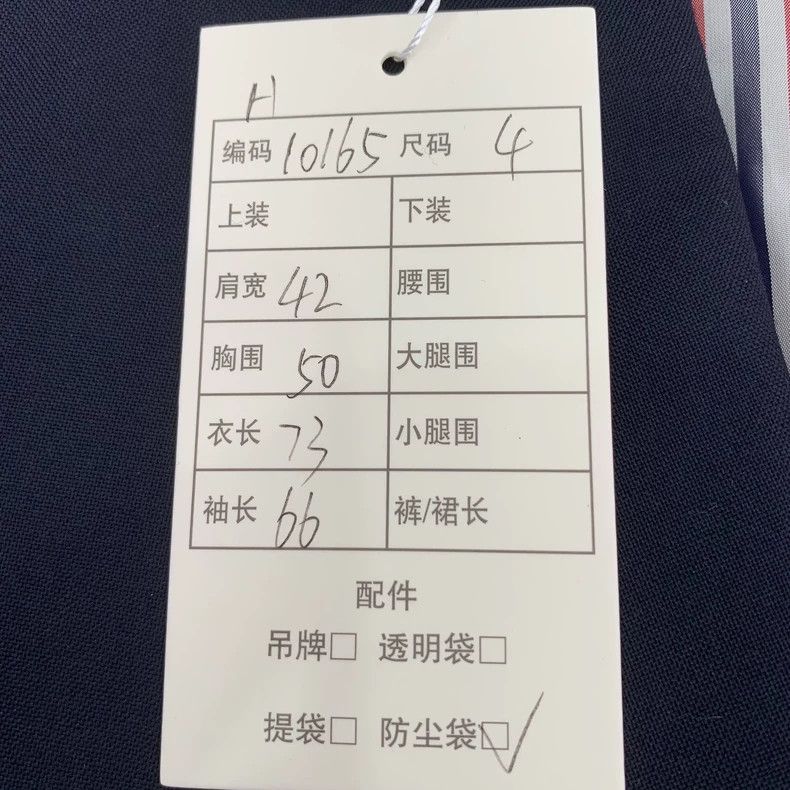 H
编码 10165 尺码 4
上装 下装
肩宽 42 腰围
胸围 50 大腿围
衣长 73 小腿围
袖长 66 裤/裙长
配件
吊牌□ 透明袋□
提袋□ 防尘袋☑